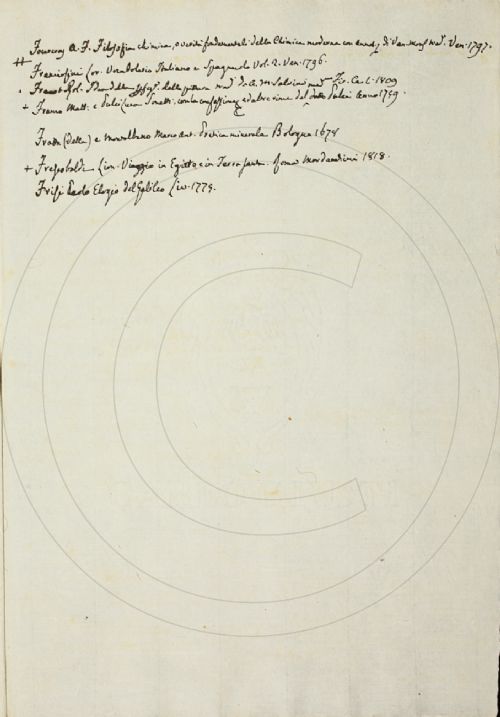 Fourcroy A. F. Filosofia chimica, o verità fondamentali della Chimica moderna con annotaz di Van-Mons trad. Ven. 1797.
++ Franciosini Lor. Vocabolario Italiano e Spagnuolo Vol. 2. Ven. 1796.
Idea della pittura trad. da A. M. Salvini 1809
+ Franco Matt. e Pulci Luca Sonetti, con la confessione ed altre rime del detto Pulci Anno 1759.
Fratta (della) e Montalbano Marco Ant. Pratica minerale Bologna 1678
+ Frescobaldi Lion. Viaggio in Egitto e in Terra Santa. Roma Mordacchini 1818.
Frisi Paolo Elogio del Galileo Liv. 1775.